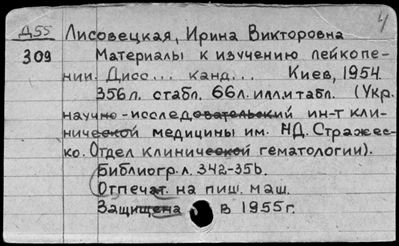 4
Д55 Лисовецкая, Ирина Викторовна
309 Материалы к изучению лейкопе-
нии. Дисс... канд... Киев, 1954.
356л. стабл. 66л. илл.и табл. (Укр.
научно-исследовательский ин-т кли-
нической медицины им. НД. Стражес-
ко. Отдел клинической гематологии).
Библиогр. л. 342-356.
Отпечат. на пиш. маш.
Защищена в 1955г.